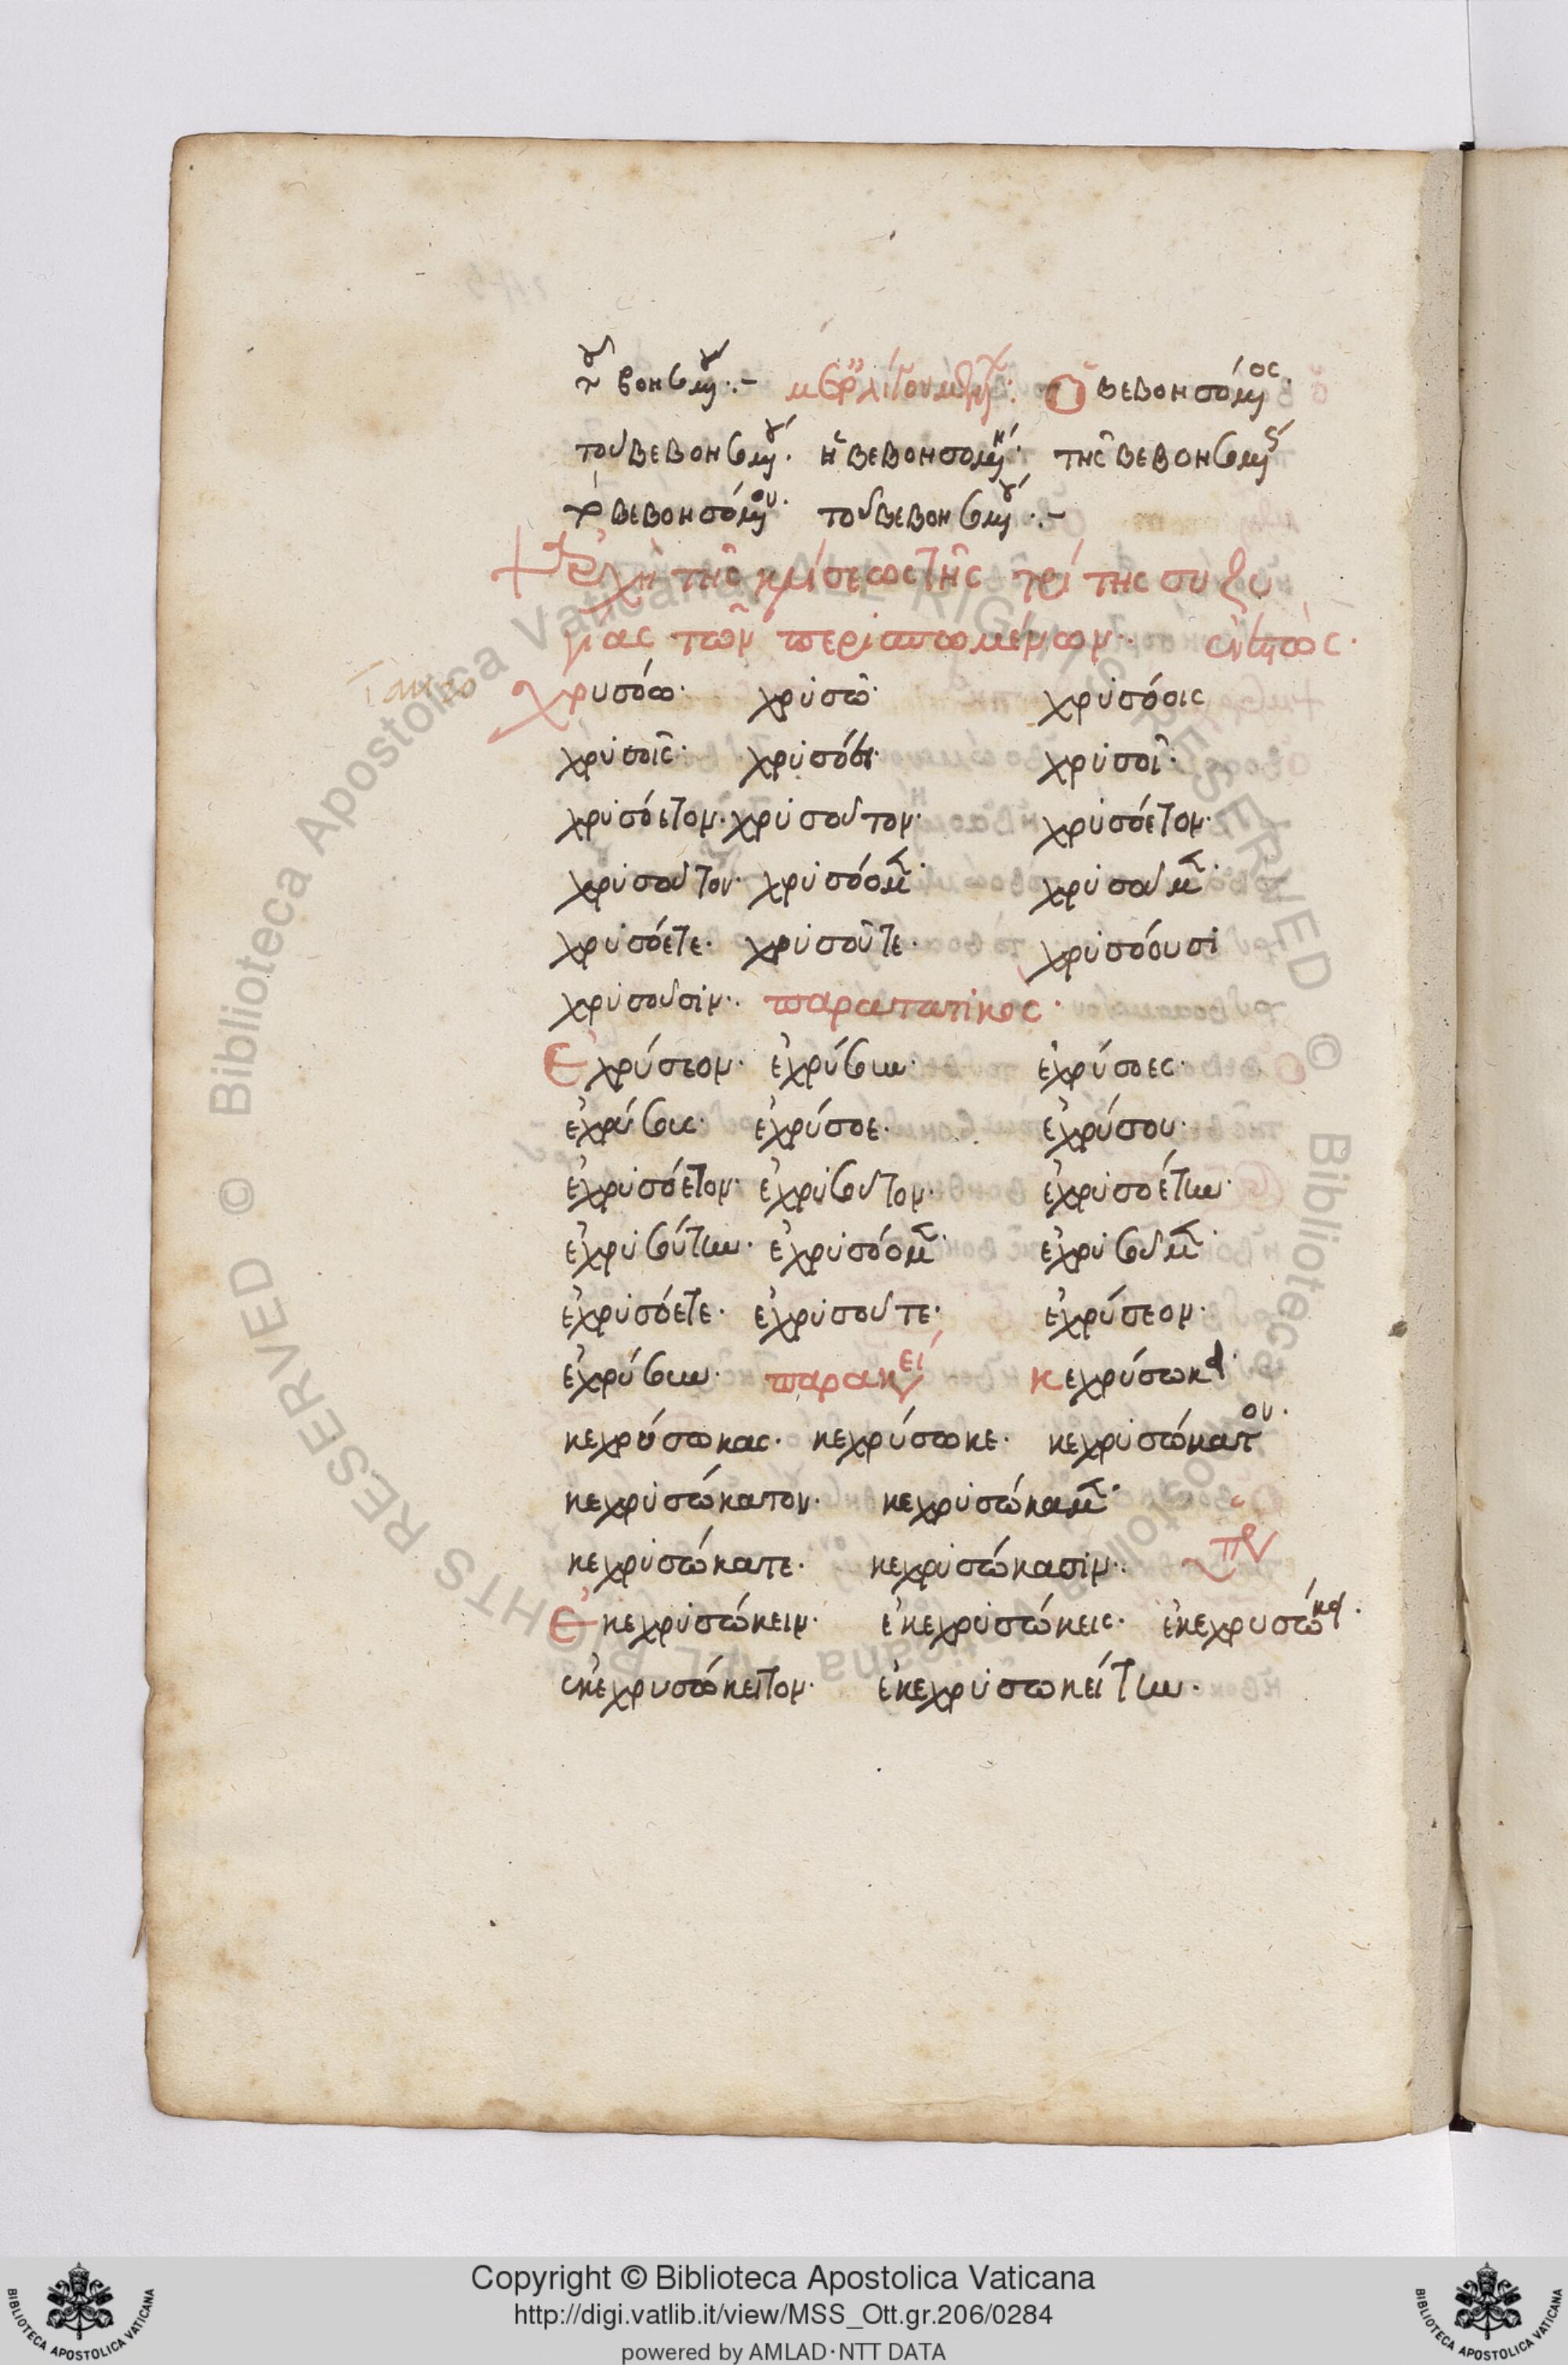 τοῦ βοησομένου·– μέλλοντος ὁ βεβοησόμενος·
τοῦ βεβοησομένου· ἡ βεβοησομένη· τῆς βεβοησομένης
τὸ βεβοησόμενον· τοῦ βεβοησομένου·–
ἀρχὴ τῆς κλίσεως τῆς τρίτης συζυ
γίας τῶν περισπωμένων· ἐνεστώς·
χρυσόω· χρυσῶ· χρυσόοις
χρυσοῖς· χρυσόει· χρυσοῖ·
χρυσόετον· χρυσοῦτον· χρυσόετον·
χρυσοῦτον· χρυσόομεν· χρυσοῦμεν·
χρυσόετε· χρυσοῦτε· χρυσόουσι
χρυσοῦσιν· παρατατικός·
Ἐχρύσεον· ἐχρύσουν· ἐχρύσοες·
ἐχρύσους· ἐχρύσοε· ἐχρύσου·
ἐχρυσόετον· ἐχρυσοῦτον· ἐχρυσοέτην·
ἐχρυσούτην· ἐχρυσόομεν· ἐχρυσοῦμεν·
ἐχρυσόετε· ἐχρυσοῦτε· ἐχρύσεον·
ἐχρύσουν· παρακεί κεχρύσωκα·
κεχρύσωκας· κεχρύσωκε· κεχρυσώκατον·
κεχρυσώκατον· κεχρυσώκαμεν·
κεχρυσώκατε· κεχρυσώκασιν·
Ἐκεχρυσώκειν· ἐκεχρυσώκεις· ἐκεχρυσώκει·
ἐκεχρυσώκειτον· ἐκεχρυσωκείτην·
Copyright © Biblioteca Apostolica Vaticana
http://digi.vatlib.it/view/MSS_Ott.gr.206/0284
powered by AMLAD·NTT DATA
BIBLIOTECA APOSTOLICA VATICANA
BIBLIOTECA APOSTOLICA VATICANA